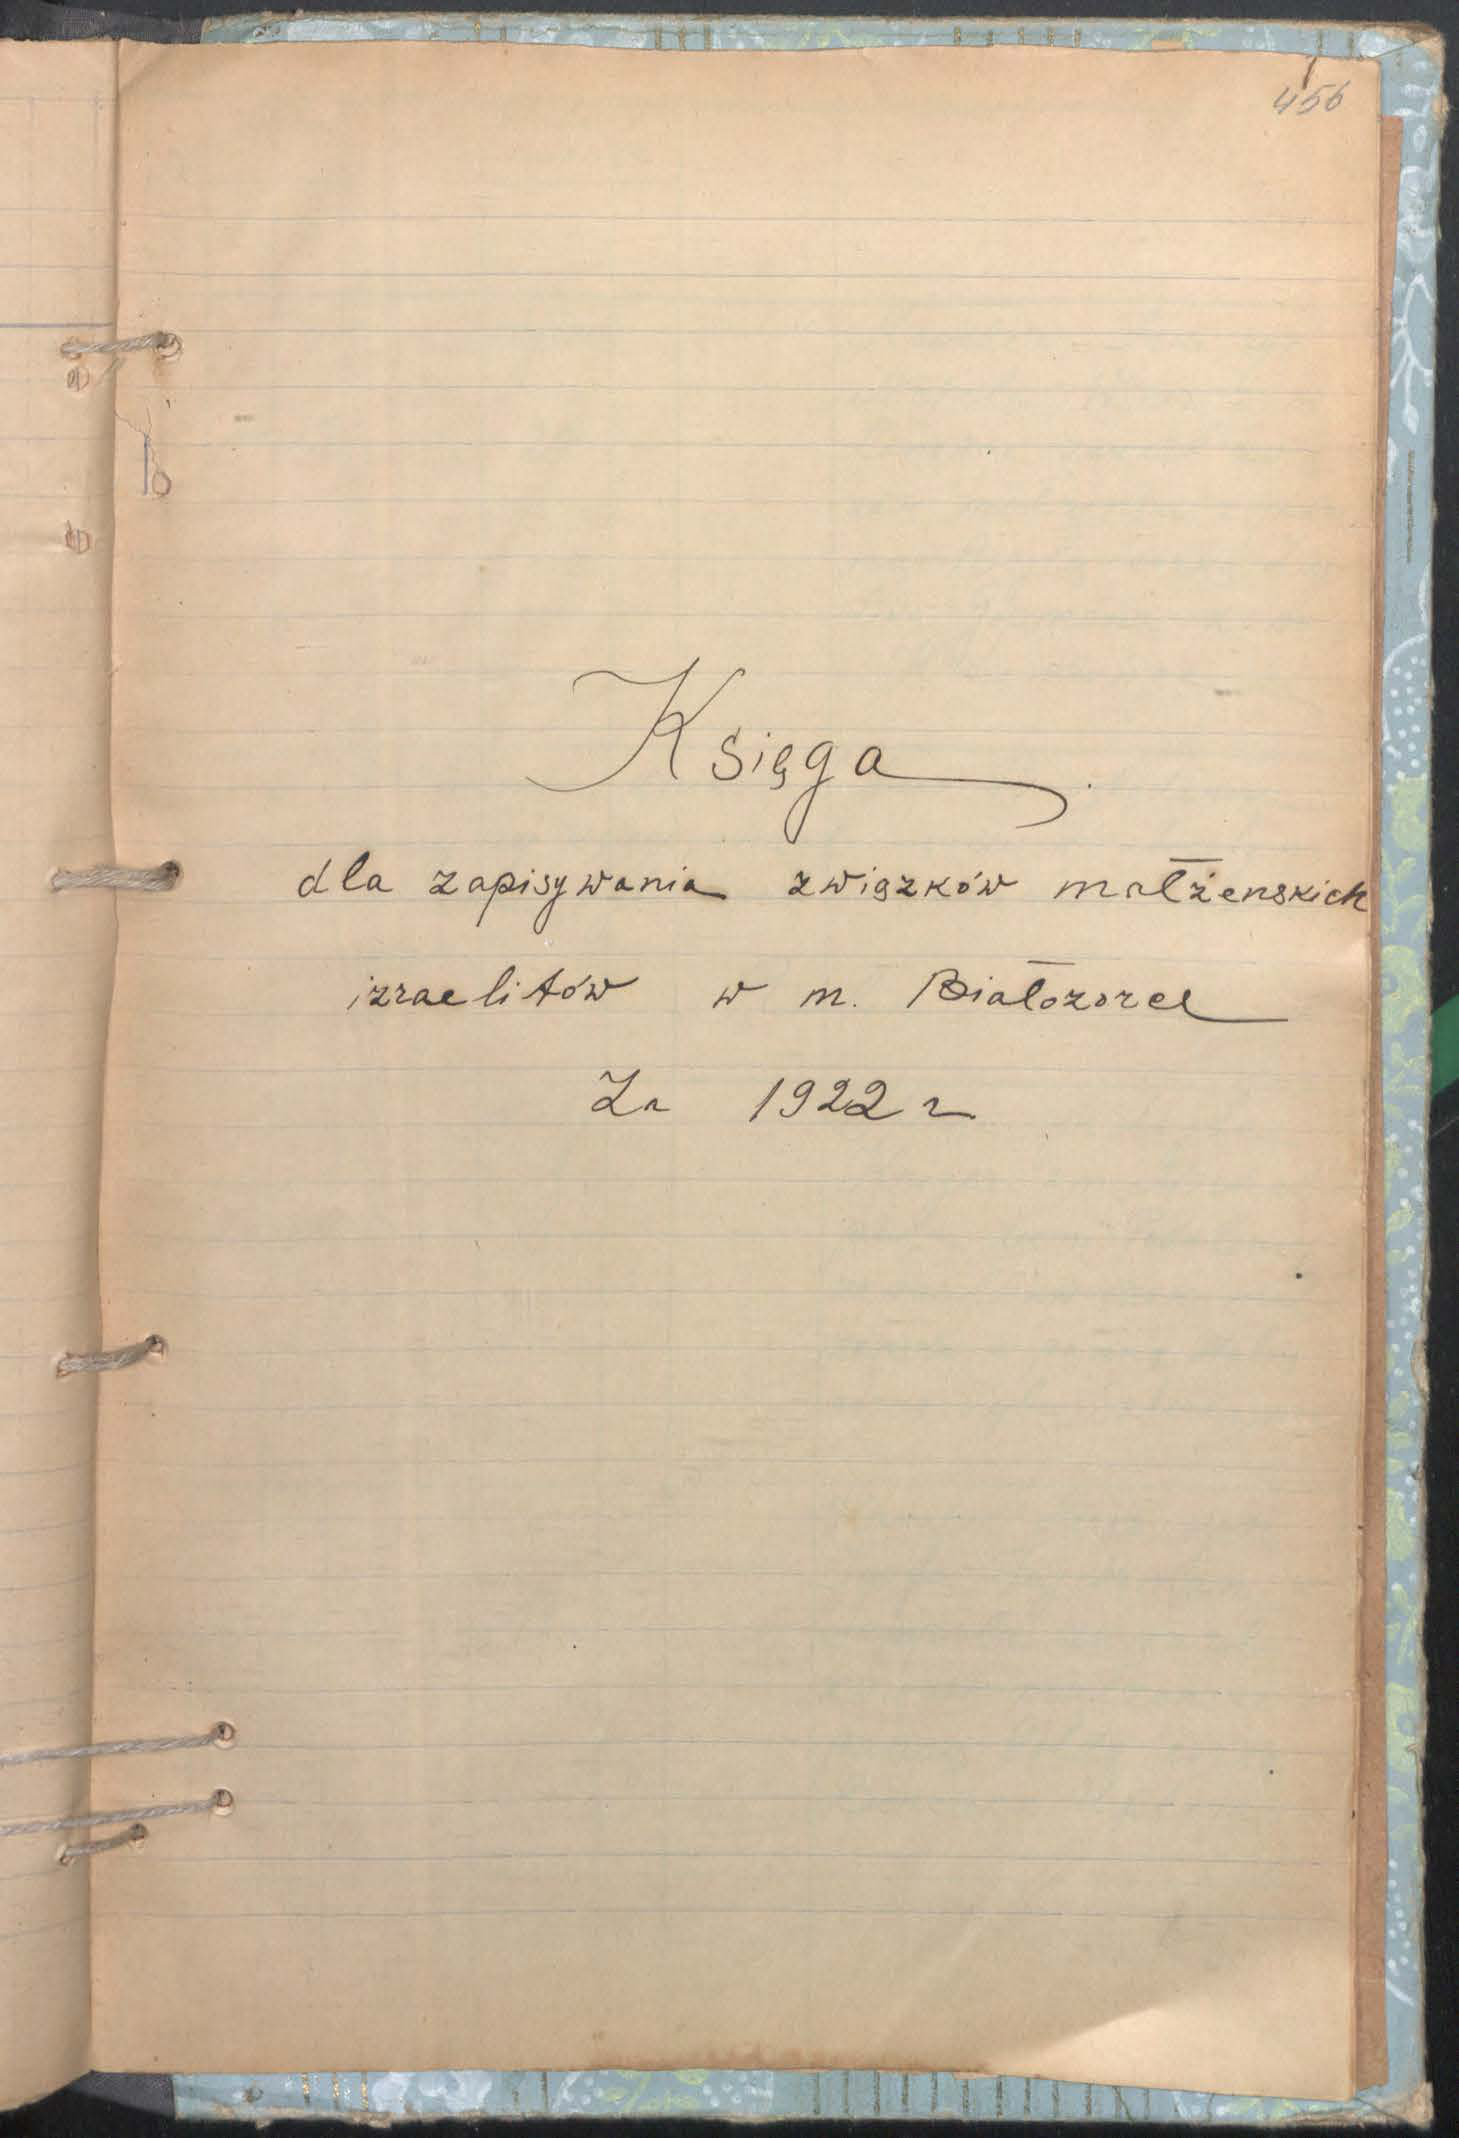 456
Księga
dla zapisywania związków małżenskich
izraelitów w m. Białozorce
Za 1922 r